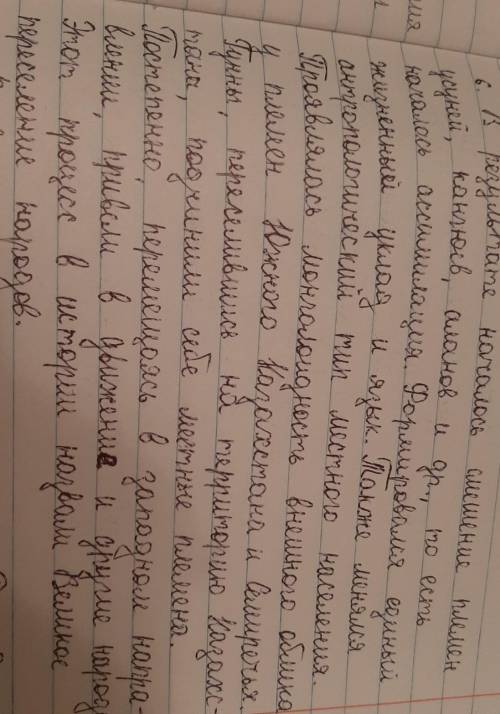 6. В результате началось смешение племен
усуней, канглюев, аланов и др., то есть
началась ассимиляция. Формировался единый
жизненный уклад и язык. Также менялся
антропологический тип местного населения.
Проявлялась монголоидность внешнего облика
у племен Южного Казахстана и Семиречья.
Гунны, переселившись на территорию Казахс-
тана, подчинили себе местные племена.
Постепенно, перемещаясь в западном напра-
влении, привели в движение и другие народы
Этот процесс в истории назвали Великое
переселение народов.